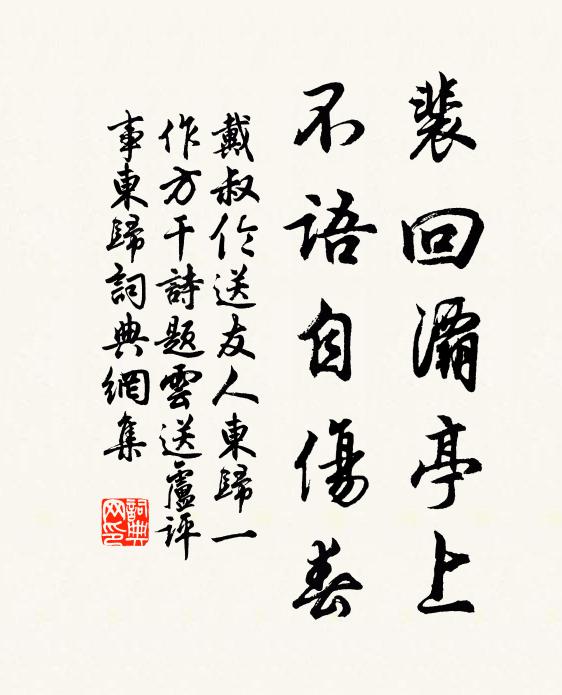 裴回灞亭上
不語自傷春
戴叔伦送友人東歸一
作方干詩題雲送盧評
事東歸詞典網集
詞典
网印